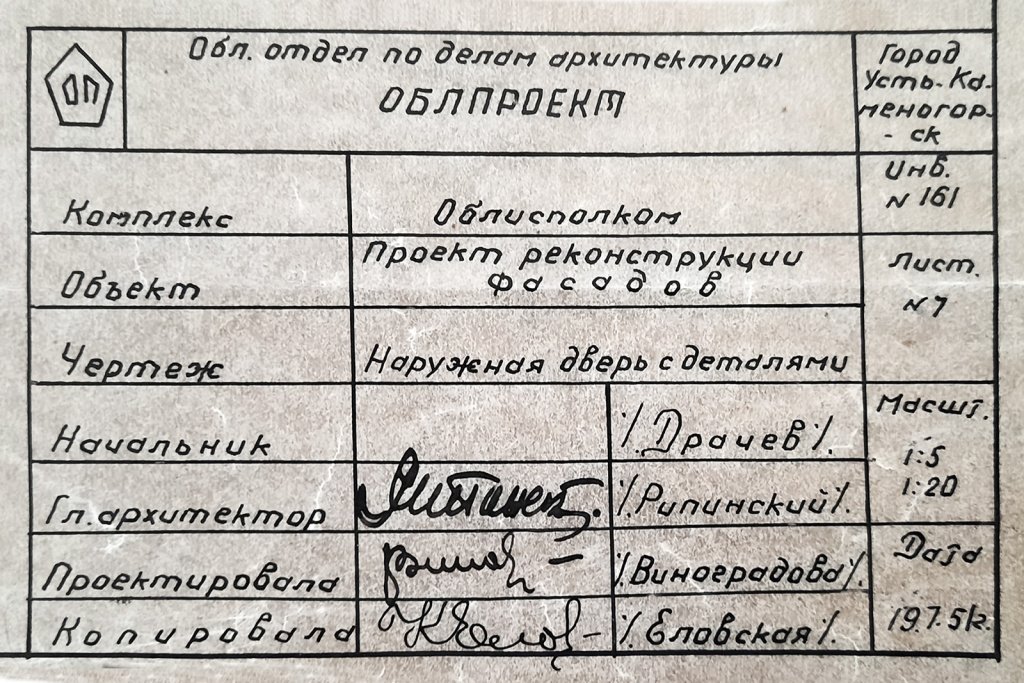 ОП
Обл. отдел по делам архитектуры
ОБЛПРОЕКТ
Город
Усть-Ка-
меногор-
- ск
Инв.
N 161
Комплекс
Облисполком
Объект
Проект реконструкции
фасадов
Лист.
N 7
Чертеж
Наружная дверь с деталями
Масшт.
1:5
1:20
Начальник
⁒Драчев⁒.
Гл. архитектор
⁒Рипинский⁒.
Проектировала
⁒Виноградова⁒.
Копировала
⁒Еловская⁒.
Дата